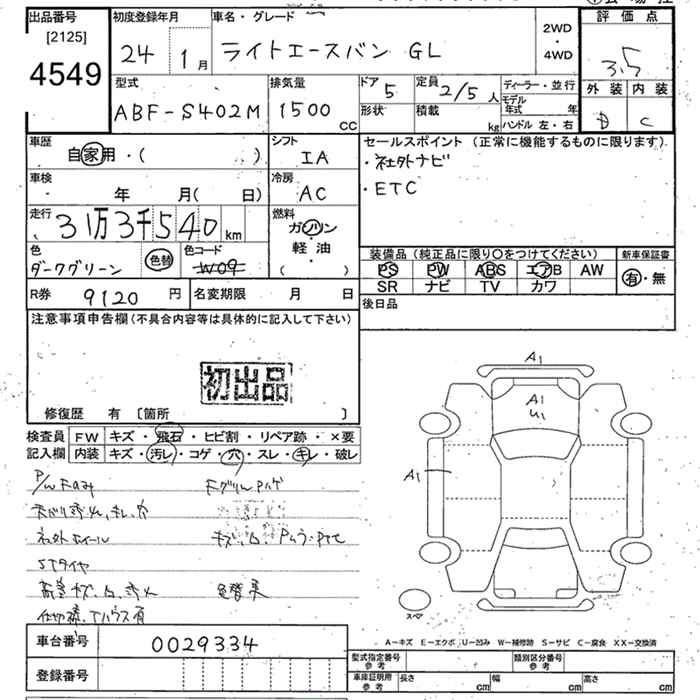 出品番号 [2125] 4549
初度登録年月 24 1月
車名・グレード ライトエースバン GL
2WD ・ 4WD
評価点 3.5
型式 ABF-S402M
排気量 1500 cc
ドア 5
形状
定員 2/5人
積載 kg
ディーラー・並行
モデル年式 年
ハンドル 左・右
外装 内装
B C
車歴 自家用・( )
シフト IA
セールスポイント (正常に機能するものに限ります)
・社外ナビ
・ETC
車検 年 月( 日)
冷房 AC
走行 31万3千540 km
燃料 ガソリン
軽油
( )
色 ダークグリーン 色替
色コード W09
装備品(純正品に限り○をつけてください)
PS PW ABS エアB AW
SR ナビ TV カワ
新車保証書
有・無
R券 9120 円
名変期限 月 日
後日品
注意事項申告欄(不具合内容等は具体的に記入して下さい)
初出品
修復歴 有 [箇所 ]
検査員 FW キズ・飛石・ヒビ割・リペア跡・×要
記入欄 内装 キズ・汚レ・コゲ・穴・スレ・キレ・破レ
P/W Fのみ
社外ホイール
STタイヤ
色替
A1
A1
U1
A1
スペア
A-キズ E-エクボ U-凹み W-補修跡 S-サビ C-腐食 XX-交換済
車台番号 0029334
登録番号
型式指定番号 参考
類別区分番号 参考
車庫証明用 参考 長さ cm 幅 cm 高さ cm